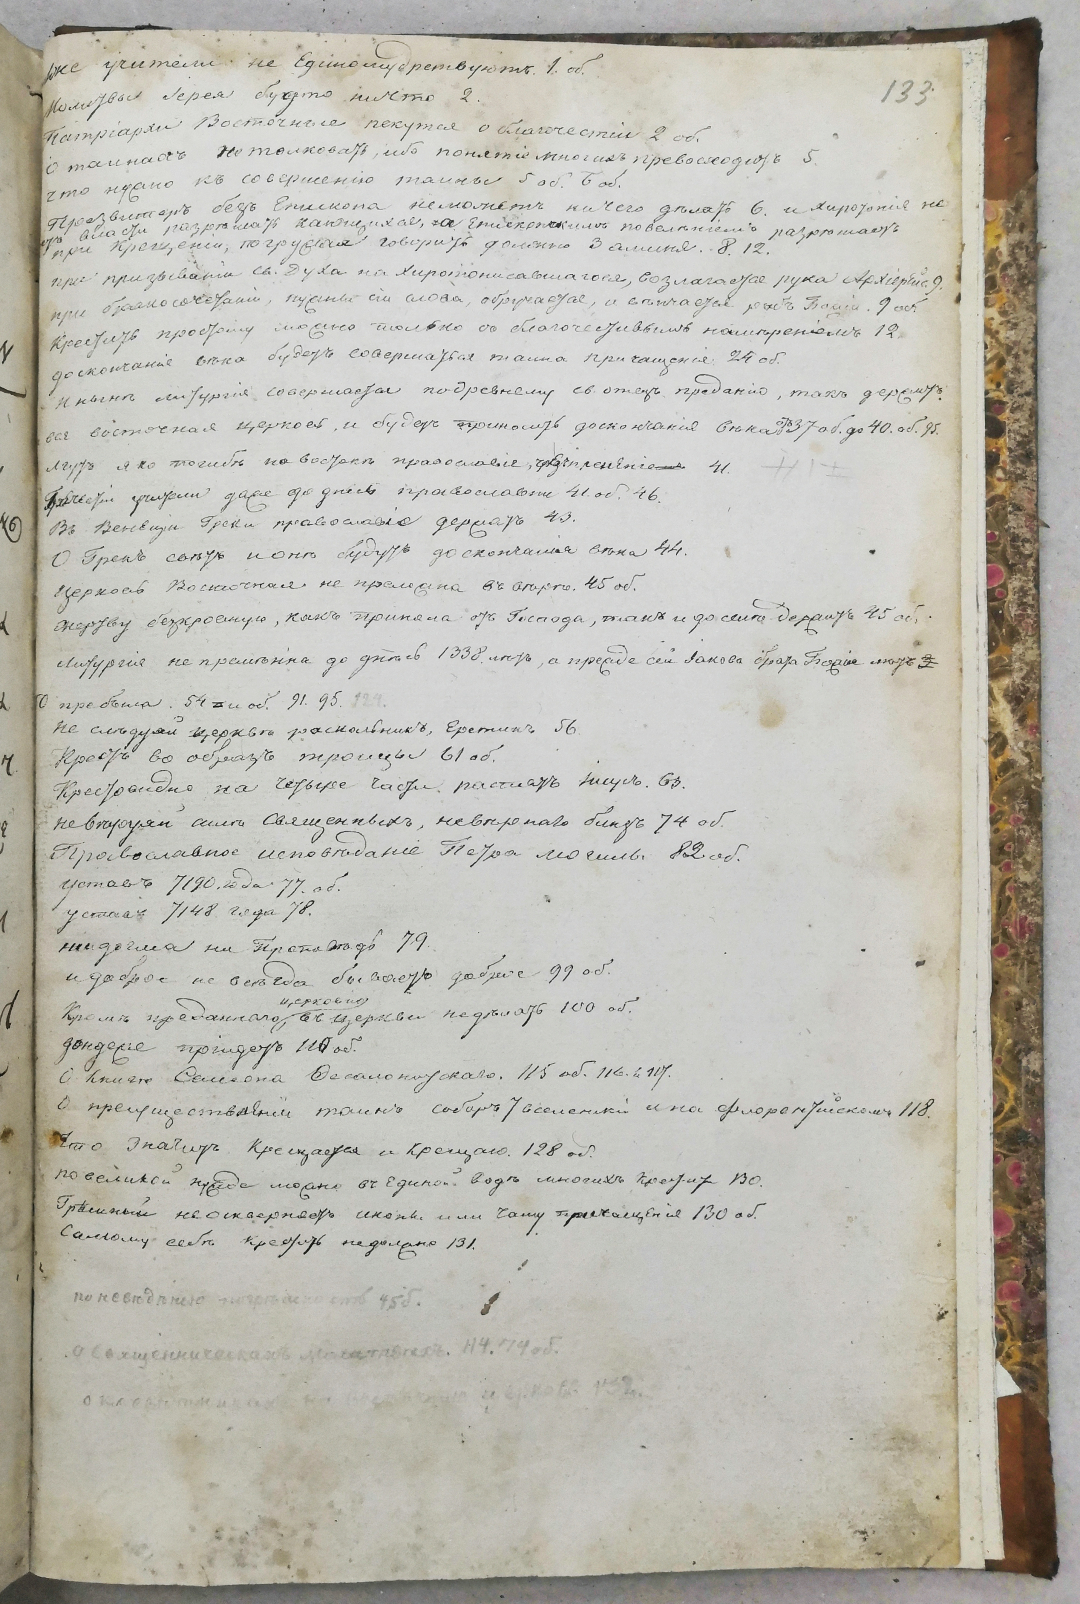 133
лже учители не единомудрствуютъ. 1. об.
Молитвы Іерея будто ничто 2.
Патріархи Восточные пекутся о благочестіи 2 об.
О тайнахъ не толковать, ибо понятіе многихъ превосходитъ 5.
что нужно къ совершенію тайны 5 об. 6 об.
Пресвитеръ безъ Епископа не можетъ ничего дѣлать 6. и Хиротоніе не
отъ власти разрѣшать кающихся, а Епископскимъ повелѣніемъ разрѣшаетъ
при Крещеніи, погружая говорить должно 3 аминя. 8. 12.
при призываніи св. Духа на Хиротонисавшагося, возлагается рука Архіерейс. 9.
при бракосочетаніи, нужны сіи слова, обручается, и вѣнчается рабъ Божій. 9 об.
Крестить простому можно только съ благочестивымъ намѣреніемъ 12.
до скончанія вѣка будетъ совершаться тайна причащенія 24 об.
и нынѣ литургія совершается по древнему св. отецъ преданію, такъ держитъ
вся восточная церковь, и будетъ приносить до скончанія вѣка 37 об. до 40. об. 95.
лгутъ яко погибе на востокѣ православіе, 41.
Греческіи учители даже до днесь православни 41 об. 46.
Въ Венеціи Греки православіе держатъ 43.
О Грекъ свѣтъ и онѣ будутъ до скончанія вѣка 44.
Церковь Восточная не преложна въ вѣрѣ. 45 об.
жертву безкровную, какъ приняла отъ Господа, такъ и до селѣ держитъ 45 об.
Литургія не премѣнна до днесь 1338 лѣтъ, а прежде сей Іакова брата Божія лѣтъ
пребыла. 54 и об. 91. 95. 124.
не слѣдуяй церкви раскольникъ, Еретикъ 56
Крестъ во образъ троицы 61 об.
Крестовидно на четыре части. распятъ Іисусъ. 63.
не вѣруяй симъ священныхъ, невѣрнаго бинтъ 74 об.
Православное исповѣданіе Петра могилы 82 об.
уставъ 7190. года 77. об.
уставъ 7148 года 78.
на Проповѣдь 79.
и доброе не всегда бываетъ доброе 99 об.
церковію
Кромѣ преданнаго, въ церкви не дѣлать 100 об.
дондеже пріидетъ 110 об.
О Книгѣ Симеона Ѳессалонитскаго. 115 об. 116. и 117.
О пресуществленіи тайнъ соборъ 7 вселенскій и на Флорентійскомъ 118.
Что значитъ Крещается и Крещаю. 128 об.
по великой нуждѣ можно въ единой водѣ многихъ крестит 130.
Грѣшный не оскверняетъ иконы или чашу причащенія 130 об.
Самому себя крестить не должно 131.
по невѣдѣнію 45 об.
о священническихъ молитвахъ. 114. 174 об.
132.